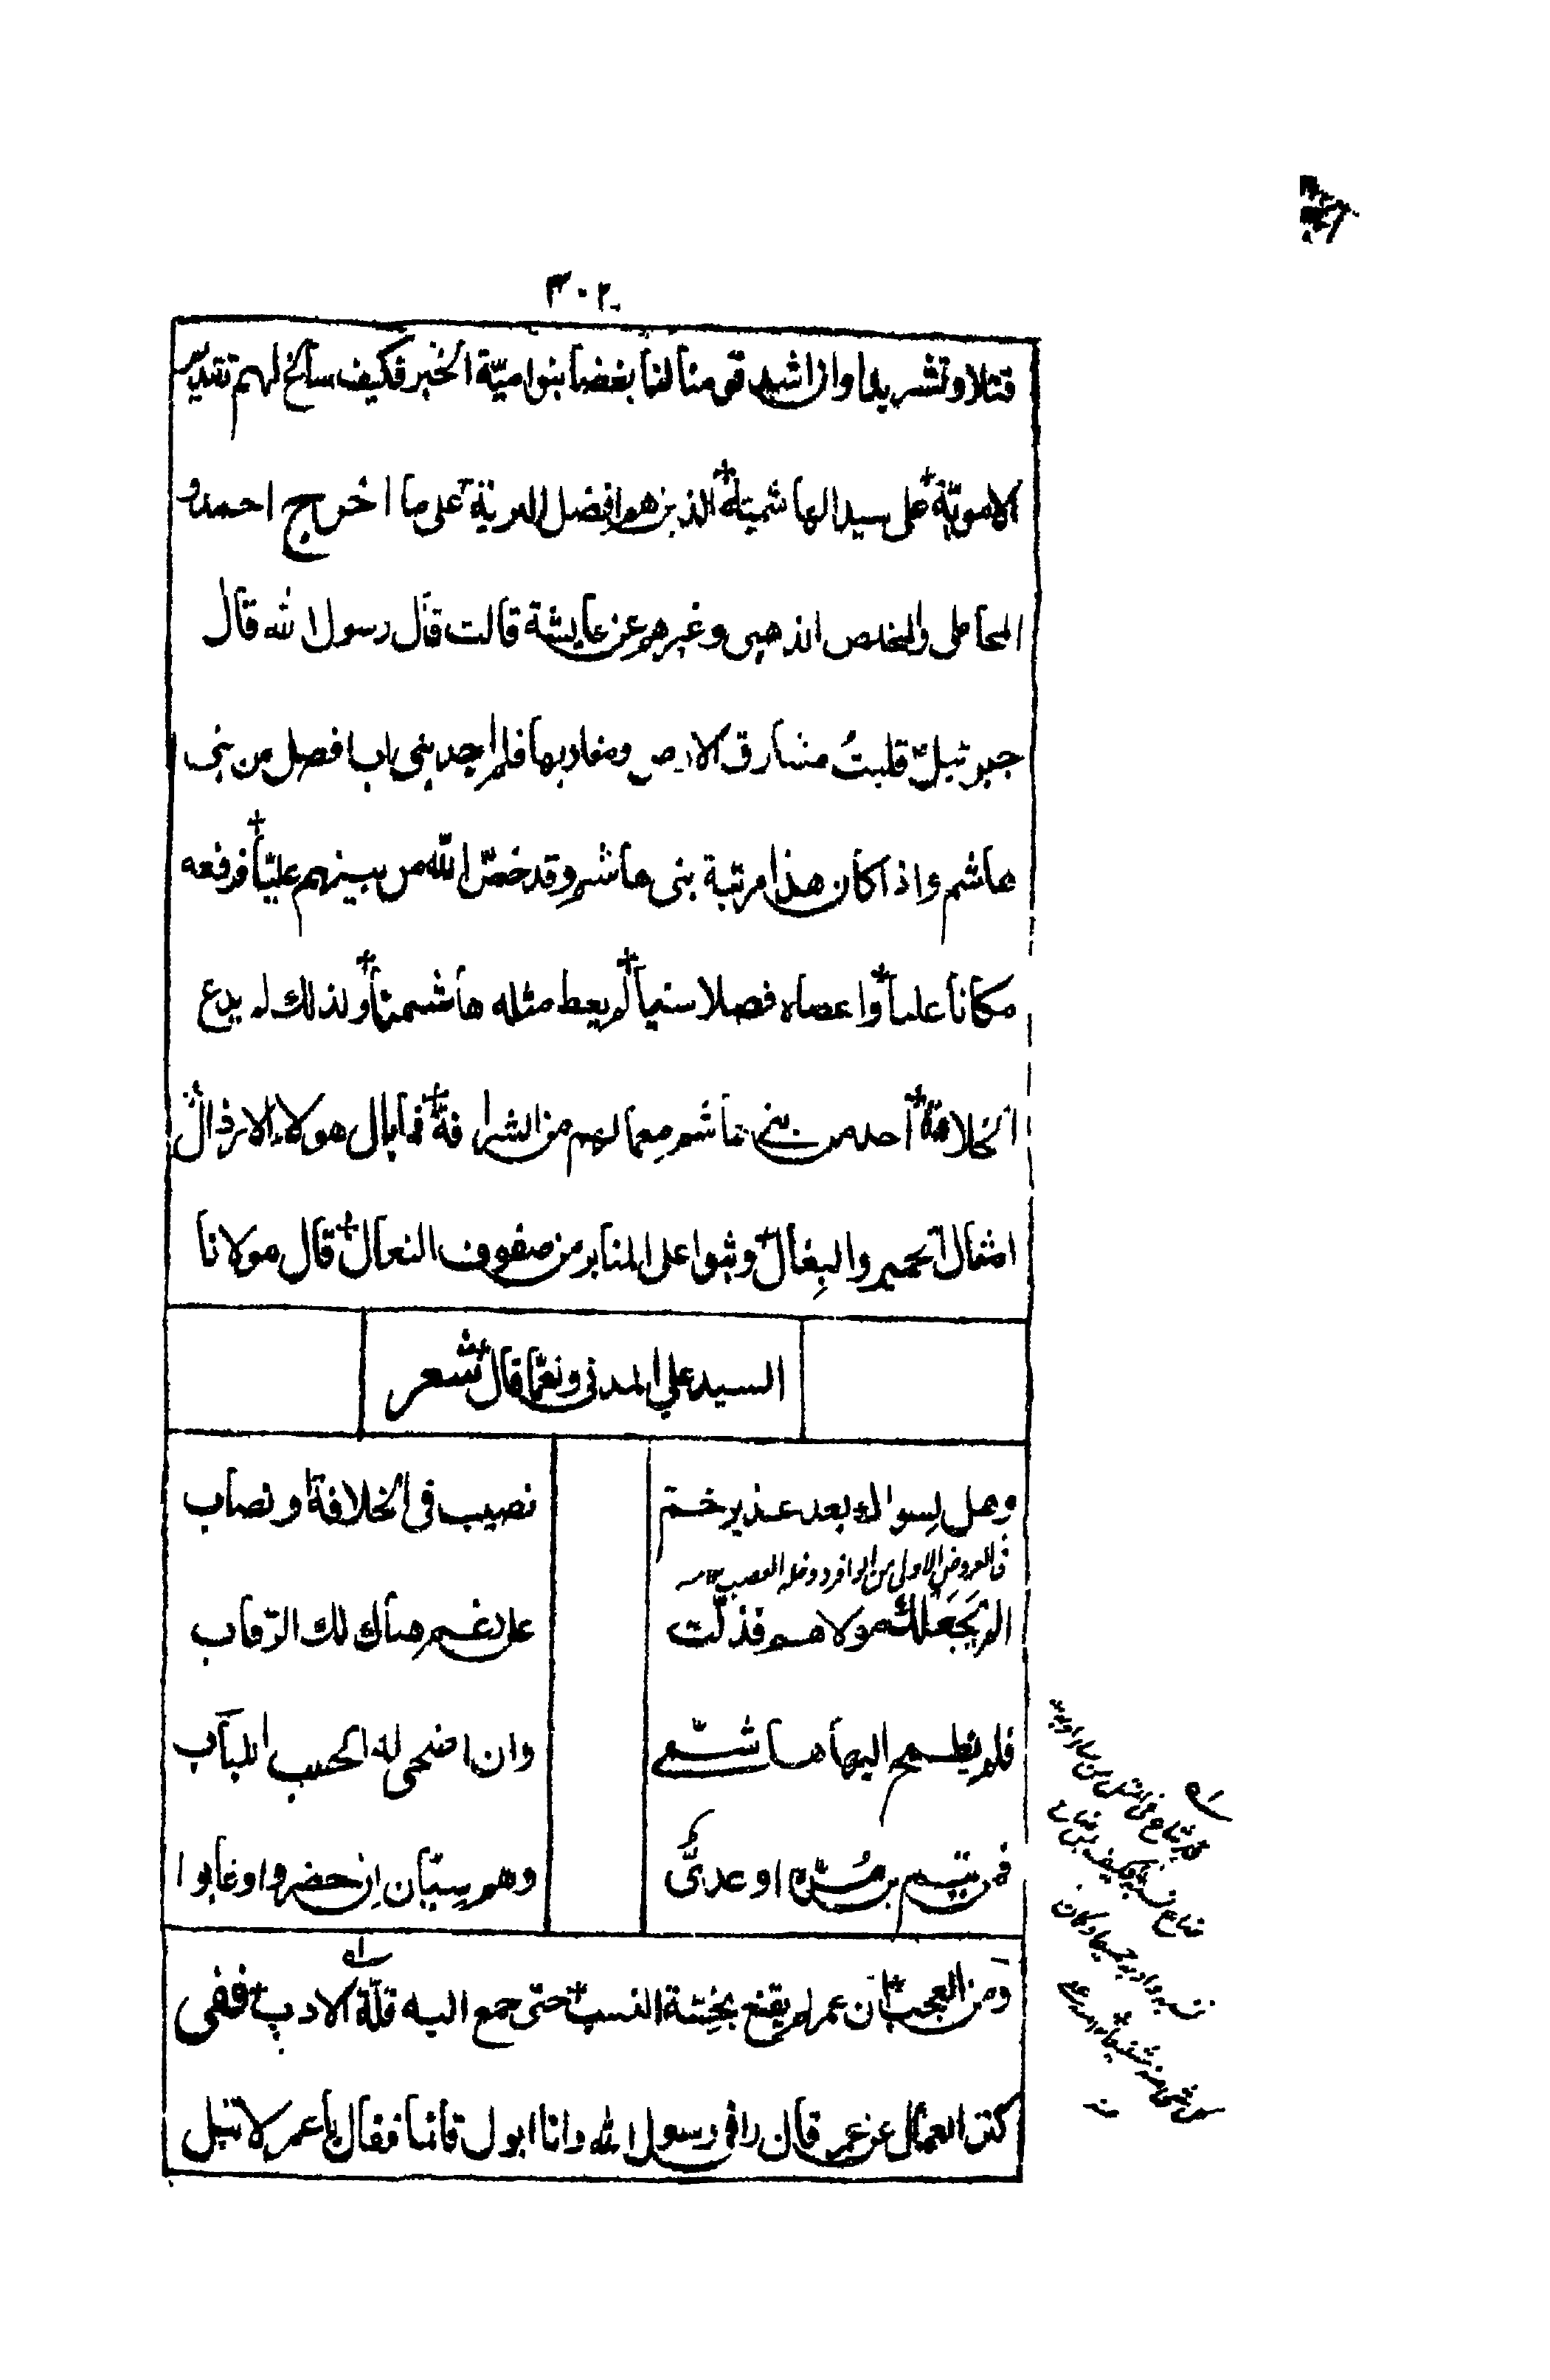 ٣٠٢
قتلا وتشريدا وان اشد قومنا لنا بغضا بنوا ميّة الخبر فكيف ساغ لهم تقديم
الامويّة على سيد الهاشميّة الذين هم افضل البرية على ما اخرج احمد و
المحاملى والمخلص الذهبى وغيرهم عن عايشة قالت قال رسول الله قال
جبرئيل قلبتُ مشارق الارض ومغاربها فلم اجد بنى اب افضل من بنى
هاشم واذا كان هذا مرتبة بنى هاشم وقد خصّ الله من بينهم عليّا فرفعه
مكانا عليا واعطاه فضلا سنيا لم يعط مثله هاشميّا ولذلك لم يدع
الخلافة احد من بنى هاشم مع ما لهم من الشرافة فما بال هولاء الارذال
امثال الحمير والبغال وثبوا على المنابر من صفوف النعال قال مولانا
السيد على المدنى ونعما قال شعر
وهل لسواك بعد غدير خم نصيب فى الخلافة او نصاب
فى العروض الاولى من الوافر دخله العصب
الم يجعلك مولاهم فذلّت على رغم هناك لك الرّقاب
فلم يطمح اليها هاشمىّ وان اضحى له الحسب اللباب
فمن تيم بن مُرّة او عدىّ وهم سيّان ان حضروا او غابوا
ومن العجب ان عمر لم يقنع بخسّة النسب حتى جمع اليه قلّة الادب ففى
كنز العمال عن عمر قال رانى رسول الله وانا ابول قائما فقال يا عمر لا تبل